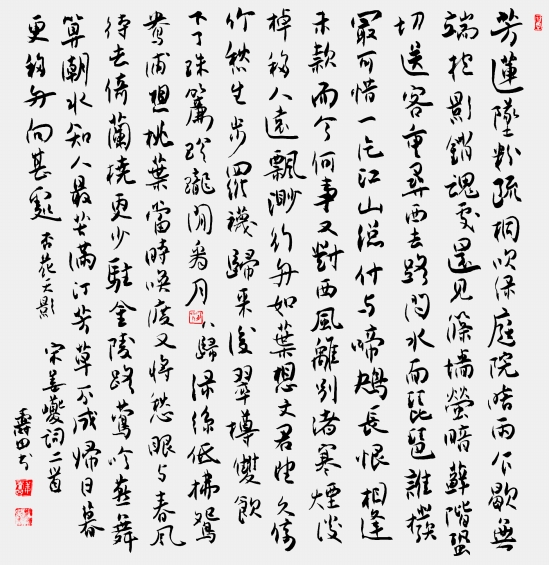 芳蓮墜粉疏桐吹绿庭院暗雨乍歇無
端抱影銷魂處還見篠墻螢暗蘚階蛩
切送客重尋西去路問水面琵琶誰撥
最可惜一片江山總付与啼鴂長恨相逢
未款而今何事又對西風離別渚寒煙淡
棹移人遠飄渺行舟如葉想文君望久倚
竹愁生步羅襪歸来後翠樽雙飲
下了珠簾玲瓏閒看月 八歸 绿絲低拂鴛
鴦浦想桃葉當時喚渡又將愁眼与春風
待去倚蘭橈更少駐金陵路鶯吟燕舞
算潮水知人最苦滿汀芳草不成歸日暮
更移舟向甚處 杏花天影
宋姜夔詞二首
田书